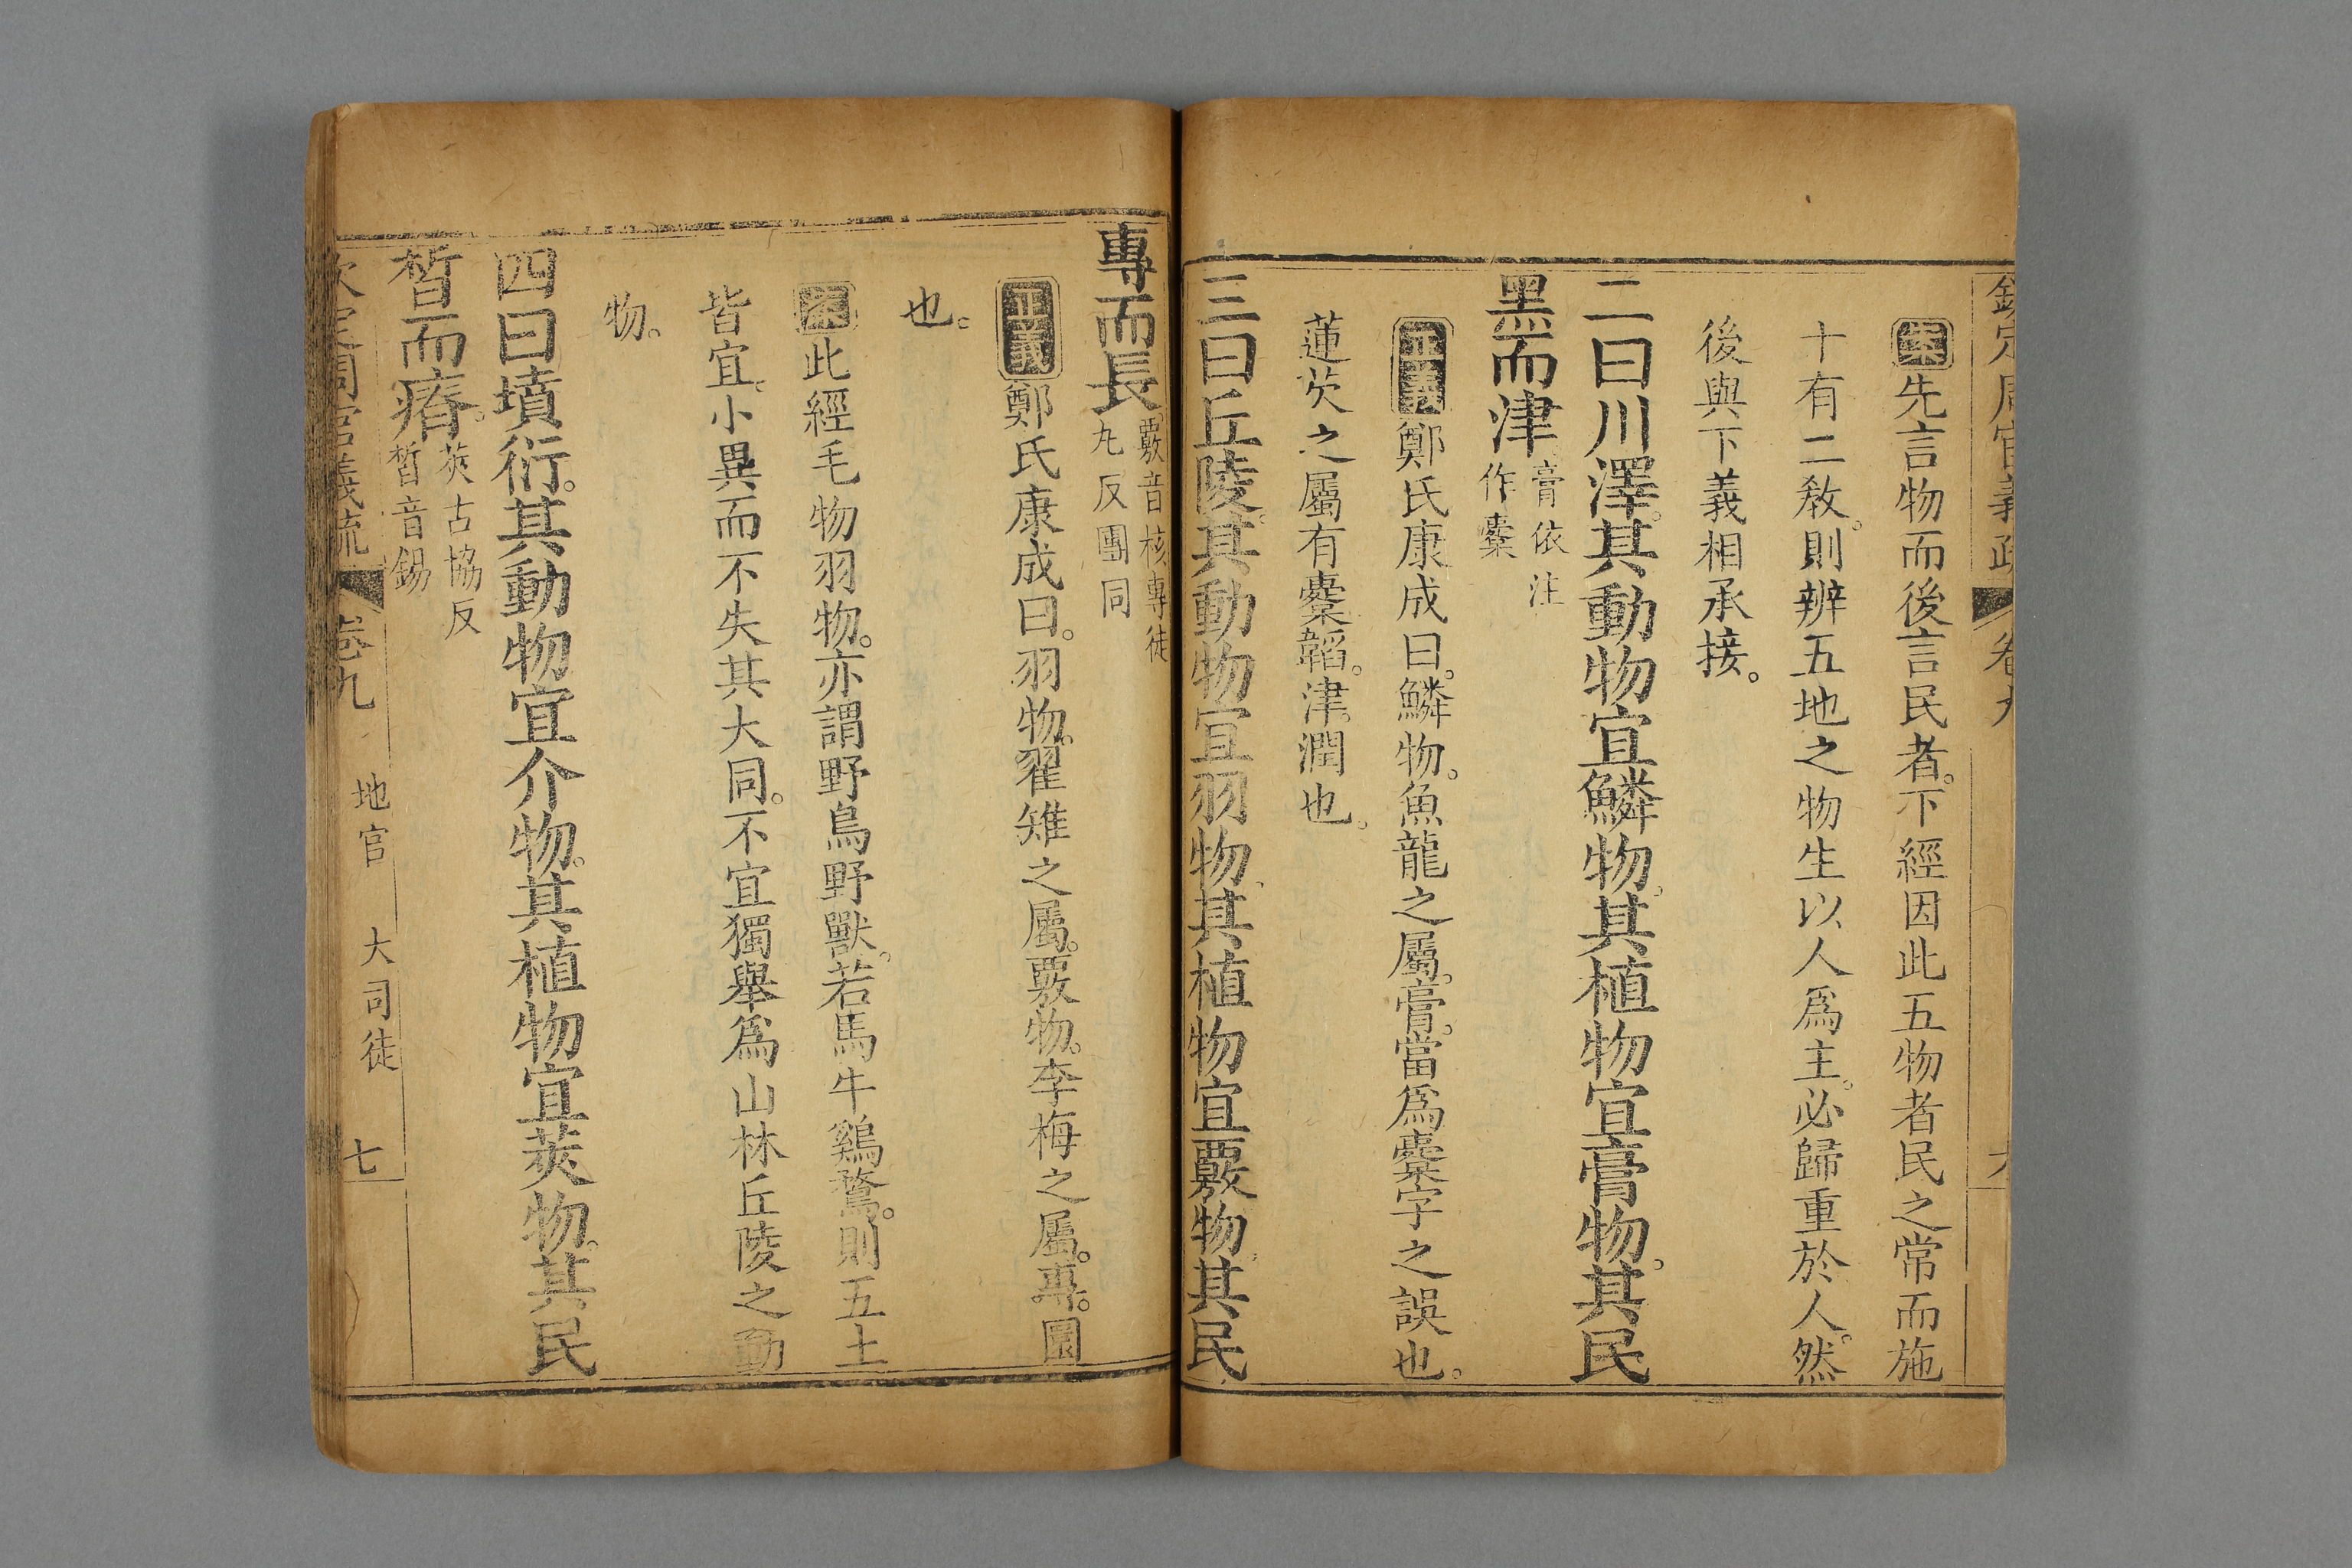 欽定周官義疏 卷九
案先言物而後言民者。下經因此五物者民之常而施
十有二敎。則辨五地之物生以人爲主。必歸重於人。然
後與下義相承接。
二曰川澤。其動物宜鱗物。其植物宜膏物。其民
黑而津膏依注作櫜
正義鄭氏康成曰。鱗物。魚龍之屬。膏。當爲櫜字之誤也。
蓮芡之屬有櫜韜。津。潤也。
三曰丘陵。其動物宜羽物。其植物宜覈物。其民
專而長覈音核專徒丸反團同
正義鄭氏康成曰。羽物。翟雉之屬。覈物。李梅之屬。專。圜
也。
案此經毛物羽物。亦謂野鳥野獸。若馬牛鷄鶩。則五土
皆宜。小異而不失其大同。不宜獨舉爲山林丘陵之動
物。
四曰墳衍。其動物宜介物。其植物宜莢物。其民
晳而瘠。莢古協反晳音錫
欽定周官義疏 卷九 地官 大司徒 七